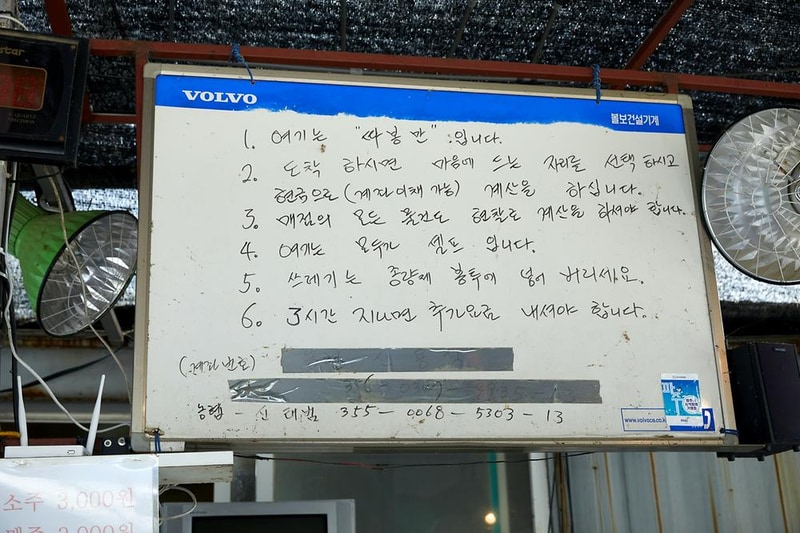 VOLVO
볼보건설기계
1. 여기는 "싸봉 만" 입니다.
2. 도착 하시면 마음에 드는 자리를 선택 하시고
현금으로 (계좌이체 가능) 계산을 하십니다.
3. 매점의 모든 물건도 현찰로 계산을 하셔야 합니다.
4. 여기는 모두가 셀프 입니다.
5. 쓰레기는 종량제 봉투에 넣어 버리세요.
6. 3시간 지나면 추가요금 내셔야 합니다.
(계좌번호)
농협 - 신태범 355-0068-5303-13
www.volvoce.co.k
소주 3,000원
맥주 3,000원